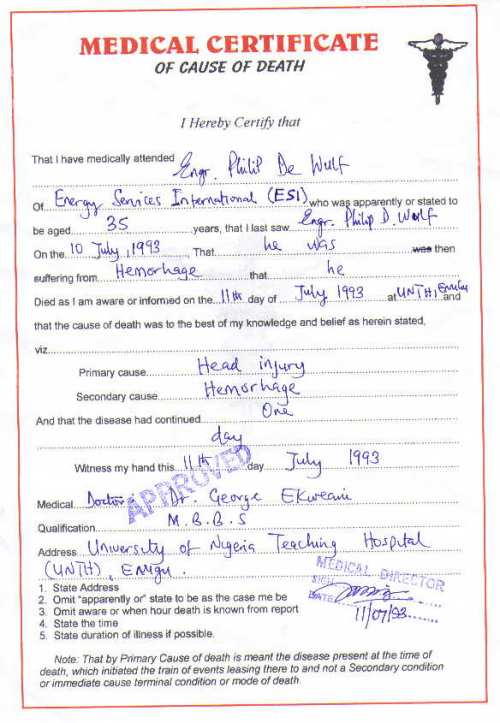 MEDICAL CERTIFICATE
OF CAUSE OF DEATH
I Hereby Certify that
That I have medically attended Engr. Philip De Wulf
Of Energy Services International (ESI) who was apparently or stated to
be aged 35 years, that I last saw Engr. Philip D. Wulf
On the 10 July, 1993, That he was was then
suffering from Hemorhage that he
Died as I am aware or informed on the 11th day of July 1993 at UNTH, Enugu and
that the cause of death was to the best of my knowledge and belief as herein stated,
viz
Primary cause Head injury
Secondary cause Hemorhage
And that the disease had continued One
day
Witness my hand this 11th day July 1993
APPROVED
Medical Doctor: Dr. George Ekweani
Qualification M.B.B.S
Address University of Nigeria Teaching Hospital
(UNTH), Enugu.
MEDICAL DIRECTOR
SIGN
DATE 11/07/93
1. State Address
2. Omit "apparently or" state to be as the case me be
3. Omit aware or when hour death is known from report
4. State the time
5. State duration of illness if possible.
Note: That by Primary Cause of death is meant the disease present at the time of
death, which initiated the train of events leasing there to and not a Secondary condition
or immediate cause terminal condition or mode of death.